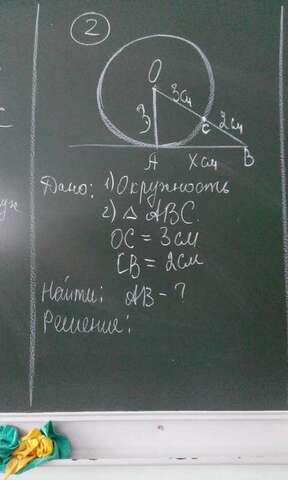 2
O
3см
3
C
2см
A
Xсм
B
Дано: 1) Окружность
2) △ ABC.
OC = 3см
CB = 2см
Найти: AB - ?
Решение: